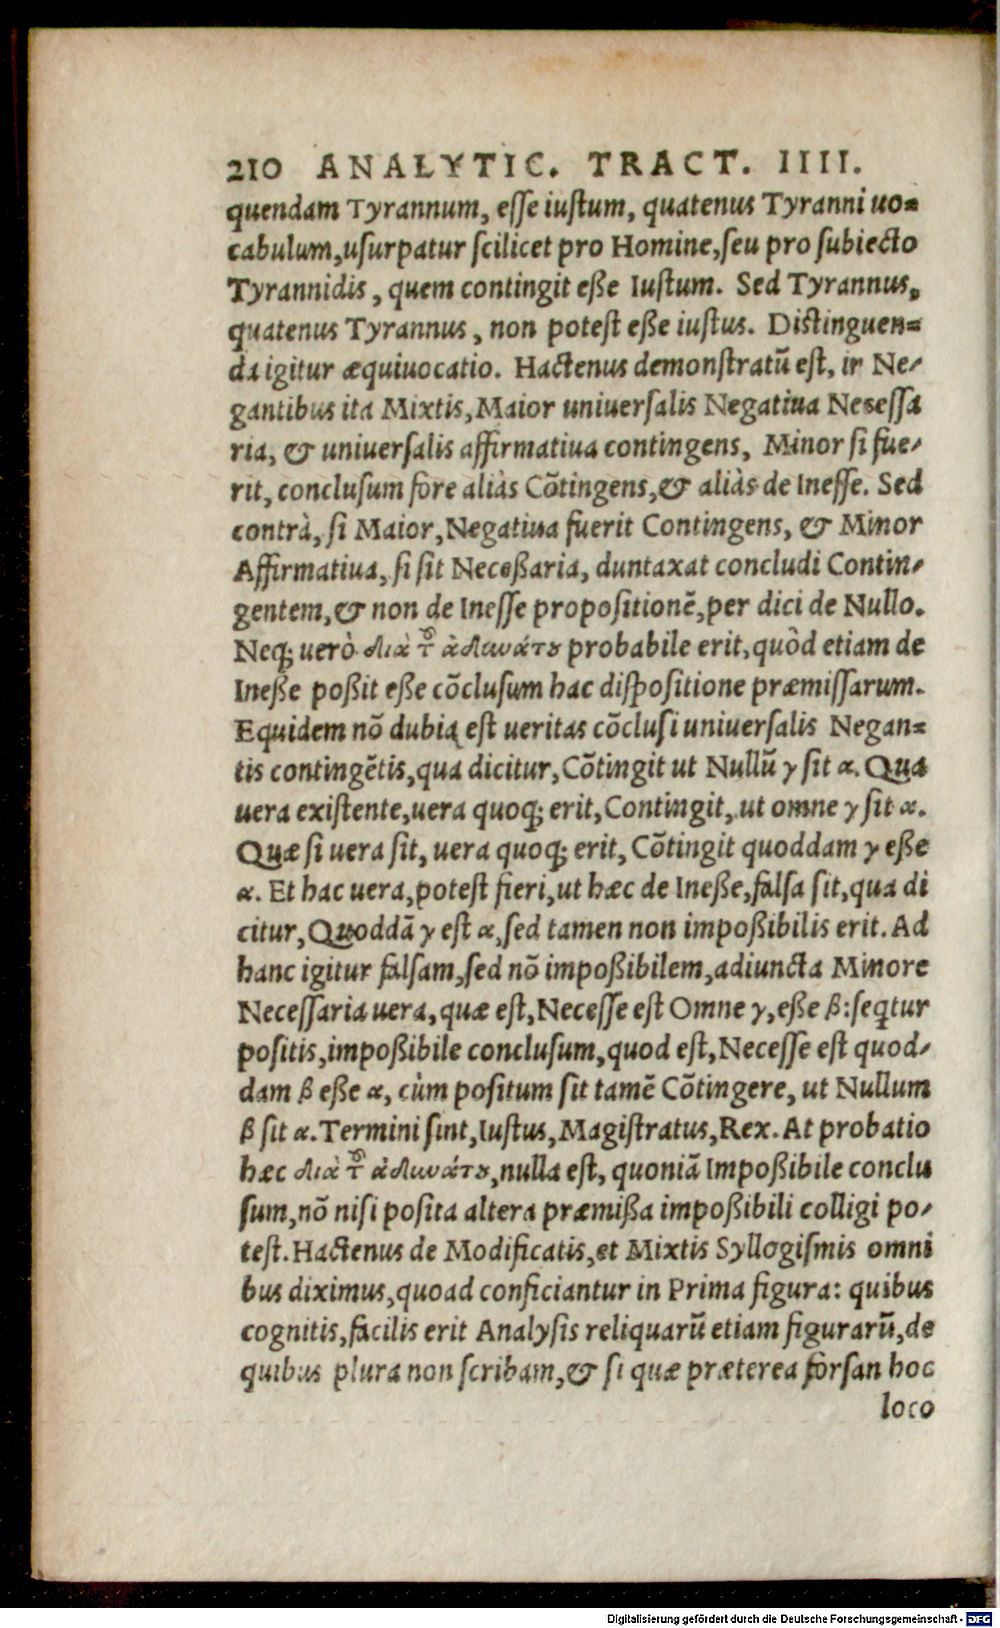 210 ANALYTIC. TRACT. IIII.
quendam Tyrannum, eſſe iuſtum, quatenus Tyranni uo=
cabulum,uſurpatur ſcilicet pro Homine,ſeu pro ſubiecto
Tyrannidis, quem contingit eße Iuſtum. Sed Tyrannus,
quatenus Tyrannus, non poteſt eße iuſtus. Diſtinguen=
da igitur æquiuocatio. Hactenus demonſtratũ eſt, in Ne-
gantibus ita Mixtis,Maior uniuerſalis Negatiua Neceſſa
ria, & uniuerſalis affirmatiua contingens, Minor ſi fue-
rit, concluſum fore aliàs Cõtingens,& aliàs de Ineſſe. Sed
contrà, ſi Maior,Negatiua fuerit Contingens, & Minor
Affirmatiua, ſi ſit Neceßaria, duntaxat concludi Contin-
gentem,& non de Ineſſe propoſitionẽ,per dici de Nullo.
Neq; uerò διὰ τȣ͂ ἀδιωάτȣ probabile erit,quòd etiam de
Ineße poßit eße cõcluſum hac diſpoſitione præmiſſarum.
Equidem nõ dubia eſt ueritas cõcluſi uniuerſalis Negan=
tis contingẽtis,qua dicitur,Cõtingit ut Nullũ γ ſit α. Qua
uera exiſtente,uera quoq; erit,Contingit, ut omne γ ſit α.
Quæ ſi uera ſit, uera quoq; erit, Cõtingit quoddam γ eße
α. Et hac uera,poteſt fieri,ut hæc de Ineße,falſa ſit,qua di
citur,Quoddã γ eſt α,ſed tamen non impoßibilis erit. Ad
hanc igitur falſam,ſed nõ impoßibilem,adiuncta Minore
Neceſſaria uera,quæ eſt,Neceſſe eſt Omne γ,eße β:ſeq̃tur
poſitis,impoßibile concluſum,quod eſt,Neceſſe eſt quod-
dam β eße α, cùm poſitum ſit tamẽ Cõtingere, ut Nullum
β ſit α.Termini ſint,Iuſtus,Magiſtratus,Rex. At probatio
hæc διὰ τȣ͂ ἀδιωάτȣ,nulla eſt, quoniã Impoßibile conclu
ſum,nõ niſi poſita altera præmißa impoßibili colligi po-
teſt.Hactenus de Modificatis,et Mixtis Syllogiſmis omni
bus diximus,quoad conficiantur in Prima figura: quibus
cognitis,facilis erit Analyſis reliquarũ etiam figurarũ,de
quibus plura non ſcribam,& ſi quæ præterea forſan hoc
loco
Digitalisierung gefördert durch die Deutsche Forschungsgemeinschaft - DFG